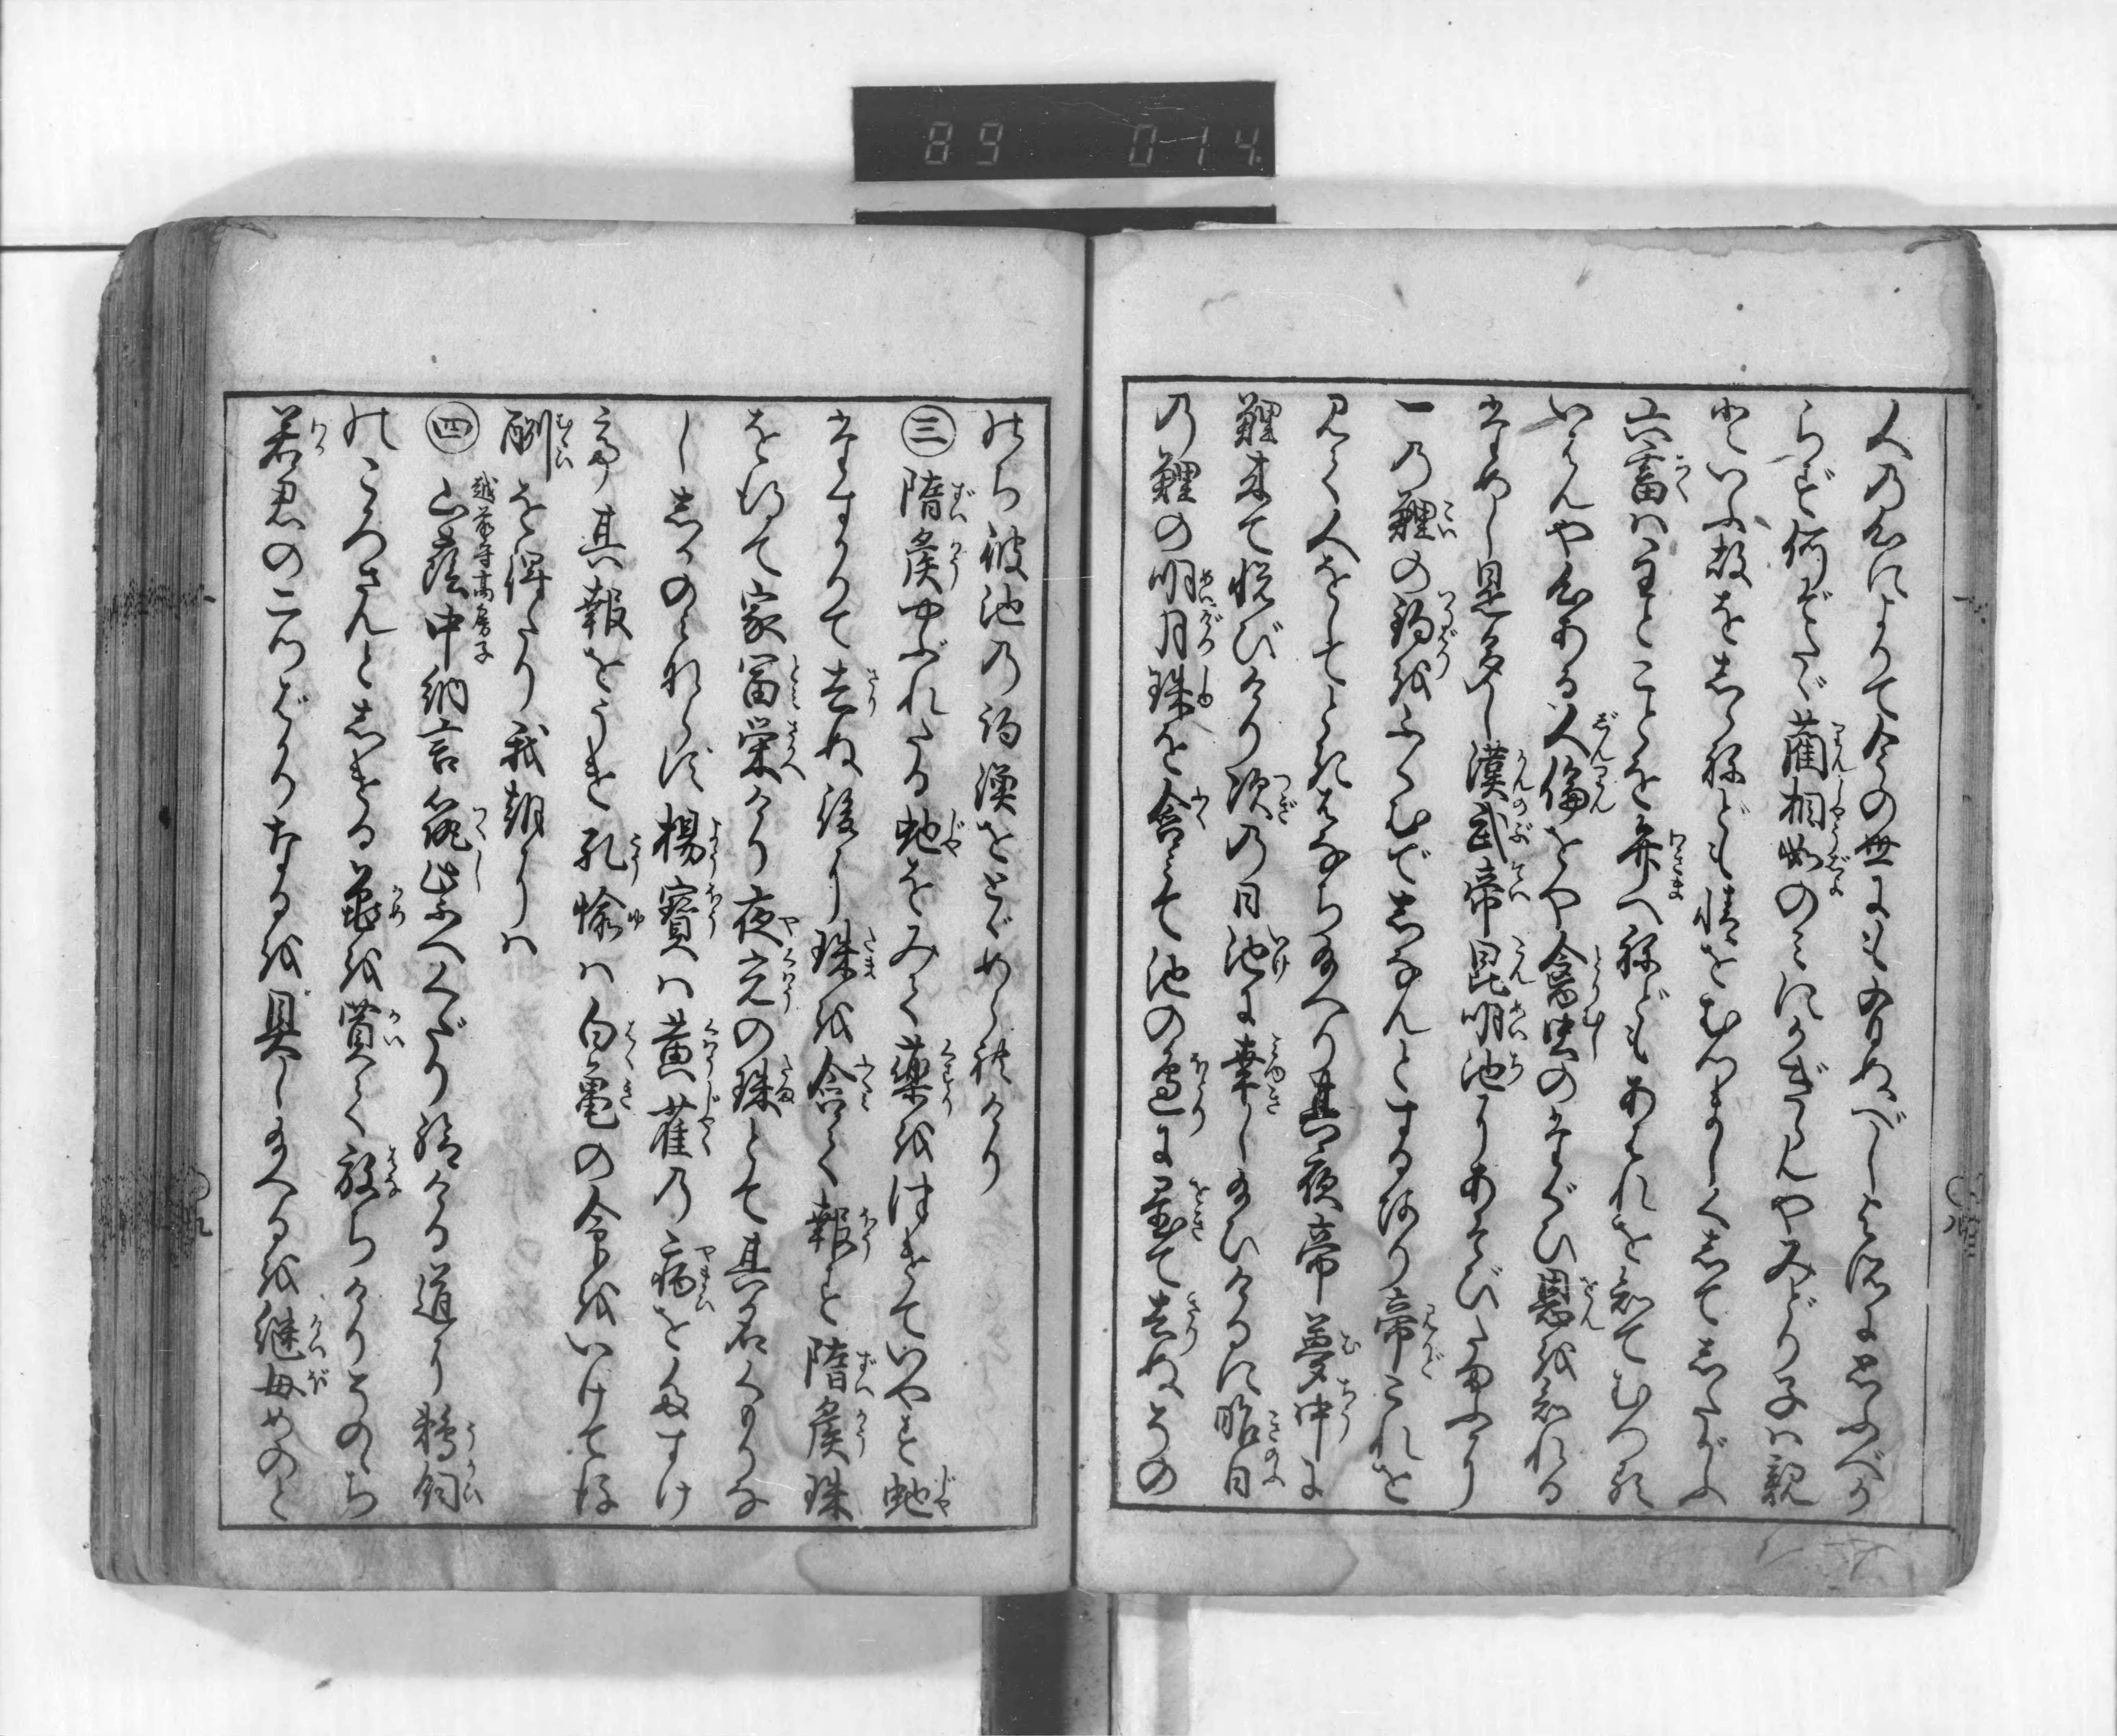 89 014
人の心によりて今の世にも有ぬべしとは源にあふべか
らず何ぞたゞ藺相如のみにかぎらんやみどり子は親
といふ故をしらねども情をむつましくしてしたがふ
六畜は主とことを弁へねどもあはれを知てむつる
いはんや心ある人倫をや禽虫のたぐひ恩を知れる
ためし是多し漢武帝昆明池にあそびたまふに
一の鯉の鈎をふくむで死なんとするあり帝これを
見て人をしてときはなち給へり其夜帝夢中に
鯉来て悦びけり次の日池に幸し給ひけるに昨日
の鯉の明月珠を含て池の辺に置て去ぬその
のち彼池の釣漢をとゞめられけり
三 隋侯やぶれたる蛇をみて薬をつけていやす蛇
たすかりて去ぬ後に珠を含て報ず隋侯珠
を得て家冨栄けり夜光の珠とて其名くもりな
ししかのみならず楊寶は黄雀の病をたすけ
て其報をうけ孔愉は白亀の命をいけてほ
酬を得たり我朝には
四 山蔭中納言越前守高房子筑紫へくだり給ける道に鵜飼
のころさんとしける亀を買て放ちけりそのゝち
若君の二つばかりなるを具し給へるを継母めのと